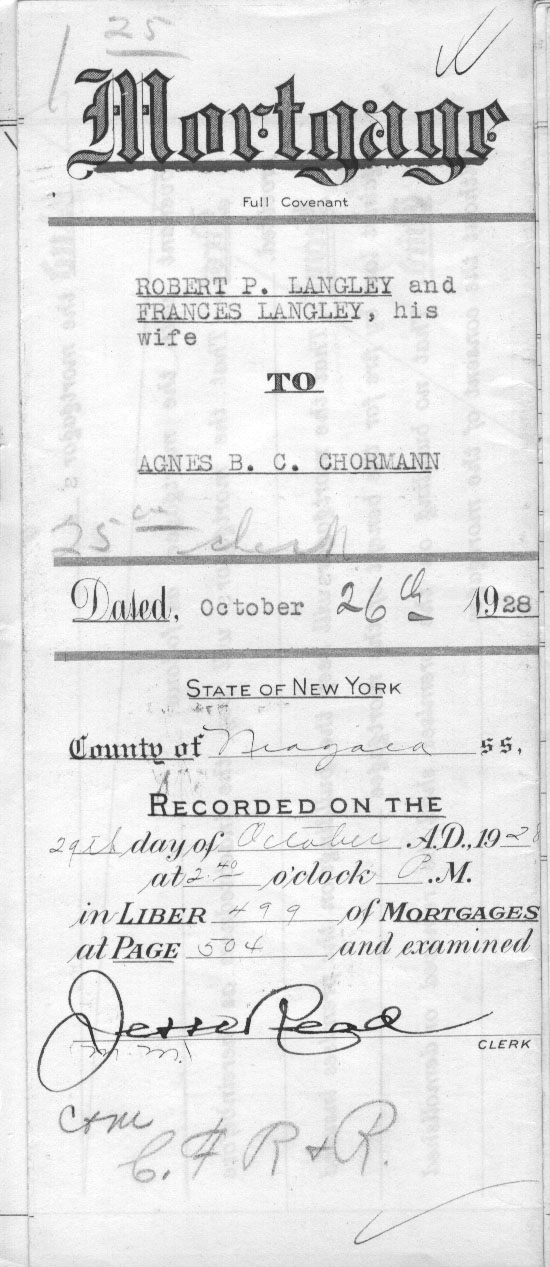 25
Mortgage
Full Covenant
ROBERT P. LANGLEY and
FRANCES LANGLEY, his
wife
TO
AGNES B. C. CHORMANN
25
Dated, October 26th 1928
STATE OF NEW YORK
County of Niagara ss,
RECORDED ON THE
29th day of October A.D., 1928
at 2.40 o'clock P.M.
in LIBER 499 of MORTGAGES
at PAGE 504 and examined
Jesse Read
CLERK
C. & R & R.